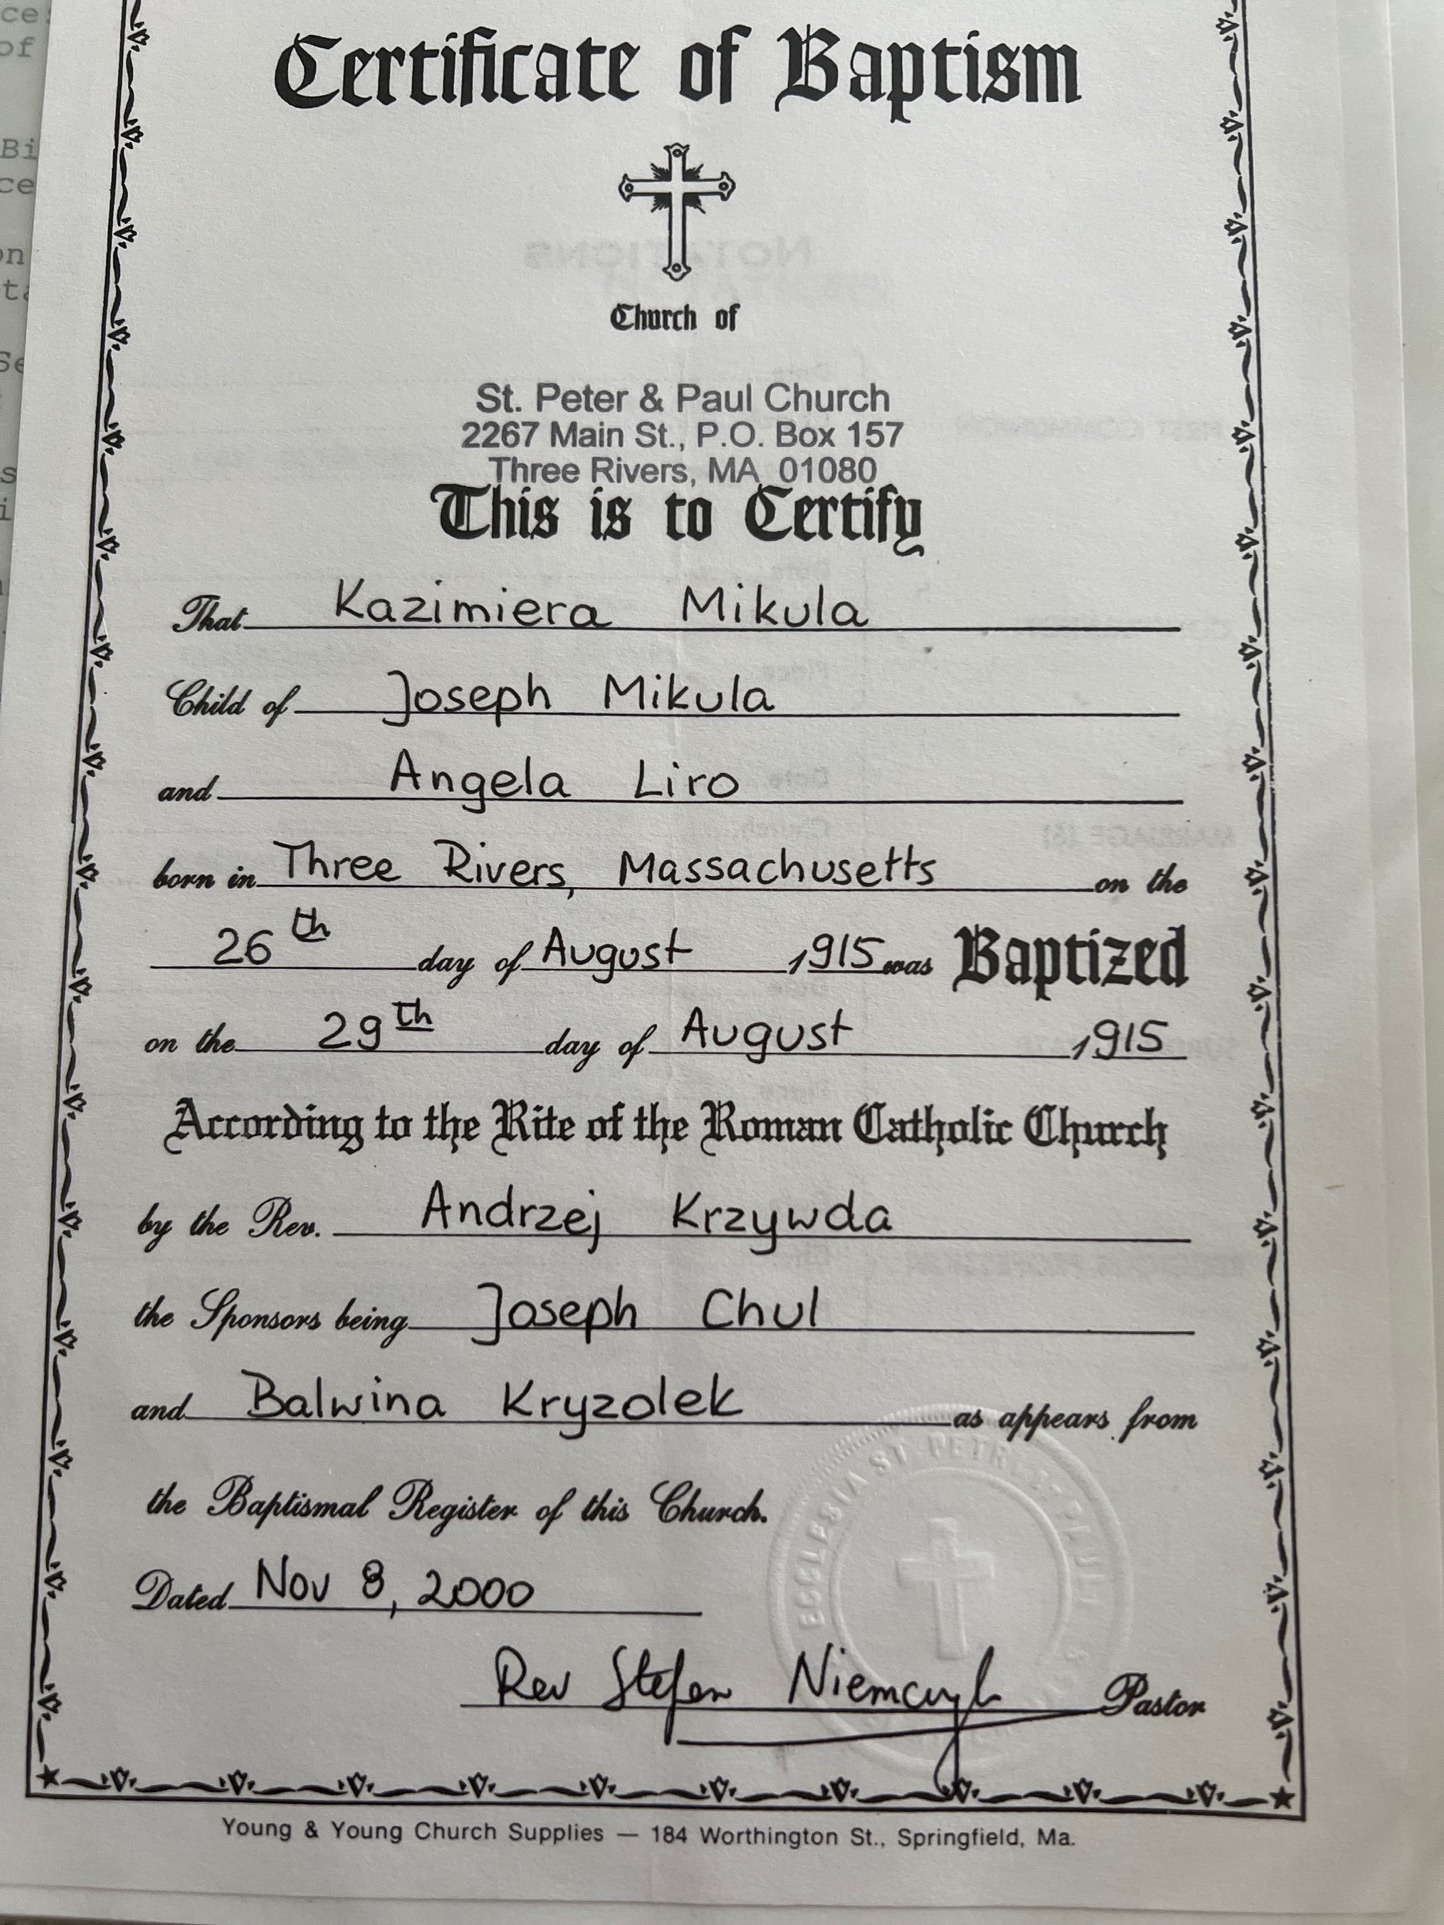 Certificate of Baptism
Church of
St. Peter & Paul Church
2267 Main St., P.O. Box 157
Three Rivers, MA 01080
This is to Certify
That Kazimiera Mikula
Child of Joseph Mikula
and Angela Liro
born in Three Rivers, Massachusetts on the
26th day of August 1915 was Baptized
on the 29th day of August 1915
According to the Rite of the Roman Catholic Church
by the Rev. Andrzej Krzywda
the Sponsors being Joseph Chul
and Balwina Kryzolek as appears from
the Baptismal Register of this Church.
Dated Nov 8, 2000
Rev Stefan Niemczyk Pastor
ECCLESIA ST. PETRI
Young & Young Church Supplies — 184 Worthington St., Springfield, Ma.